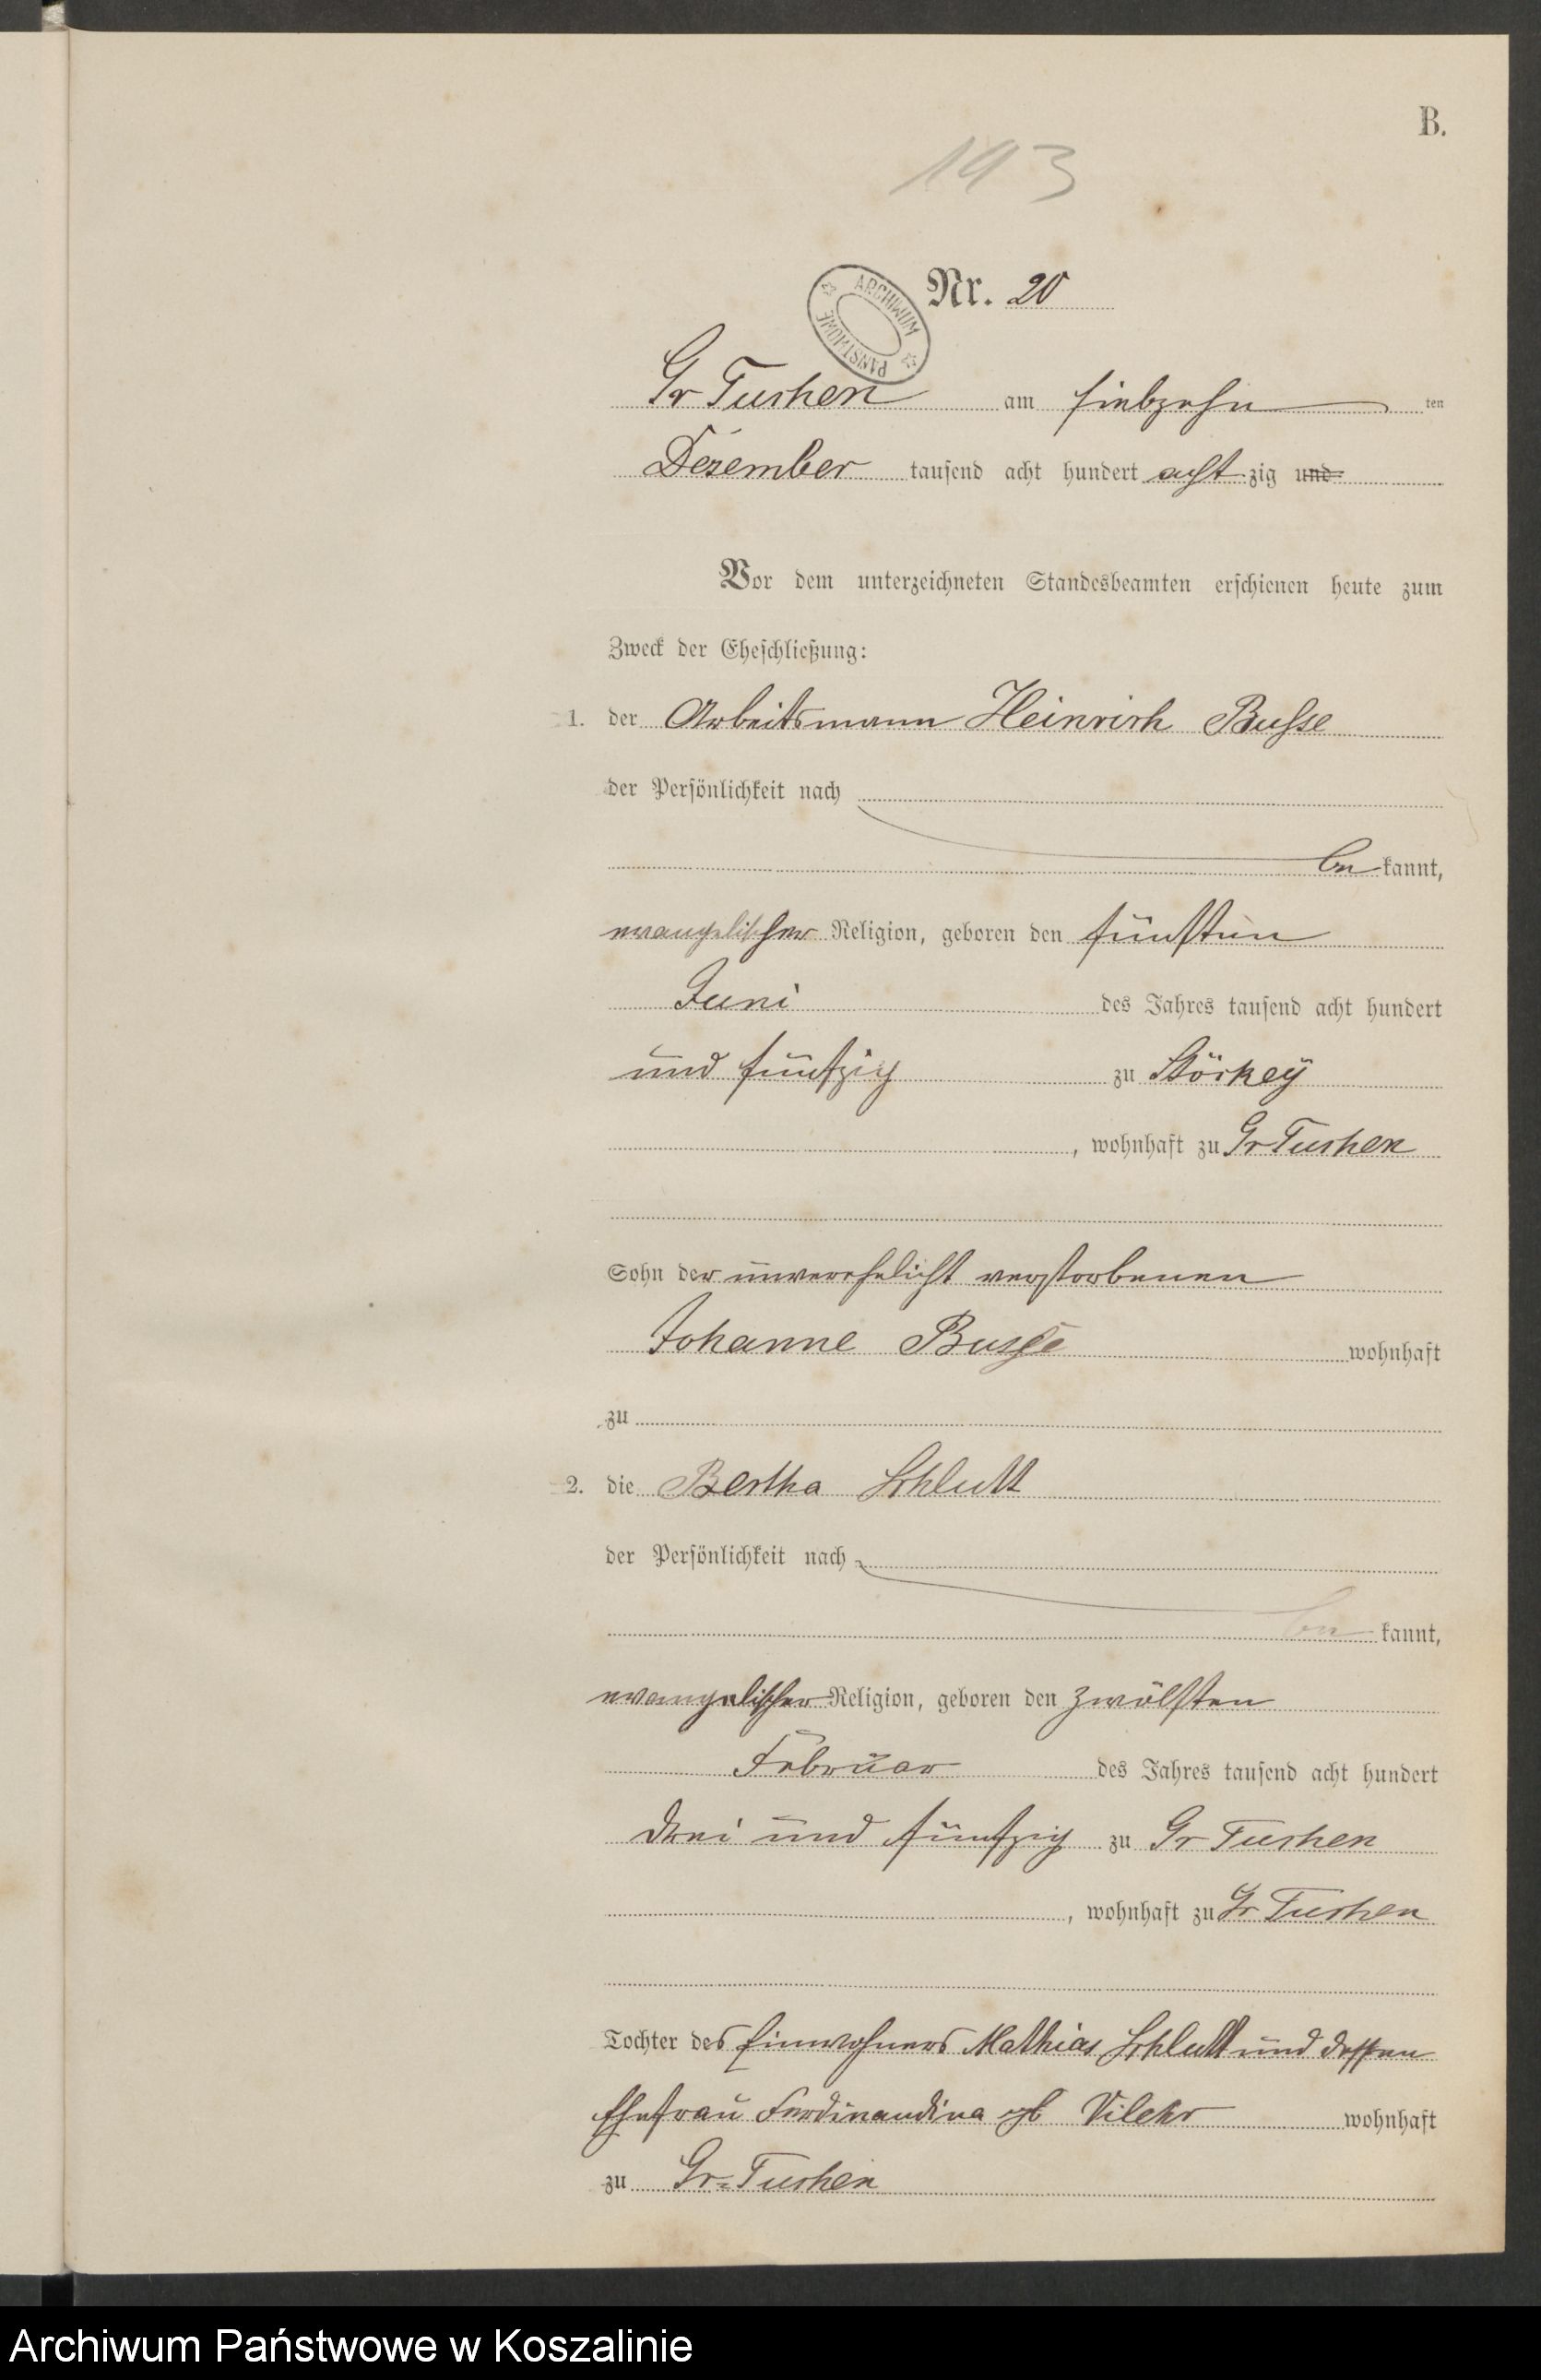 B.
193
Nr. 20
ARCHIWUM PAŃSTWOWE
Gr Tuchen am siebzehn ten
Dezember tausend acht hundert achtzig und
Vor dem unterzeichneten Standesbeamten erschienen heute zum
Zweck der Eheschließung:
1. der Arbeitsmann Heinrich Busse
der Persönlichkeit nach
bekannt,
evangelischer Religion, geboren den fünften
Juni des Jahres tausend acht hundert
und fünfzig zu
, wohnhaft zu Gr Tuchen
Sohn der unverehelicht verstorbenen
Johanne Busse wohnhaft
zu
2. die Bertha Schlutt
der Persönlichkeit nach
bekannt,
evangelischer Religion, geboren den zwölften
Februar des Jahres tausend acht hundert
drei und fünfzig zu Gr Tuchen
, wohnhaft zu Gr Tuchen
Tochter des Einwohners Mathias Schlutt und dessen
Ehefrau Ferdinandina gb wohnhaft
zu Gr=Tuchen
Archiwum Państwowe w Koszalinie